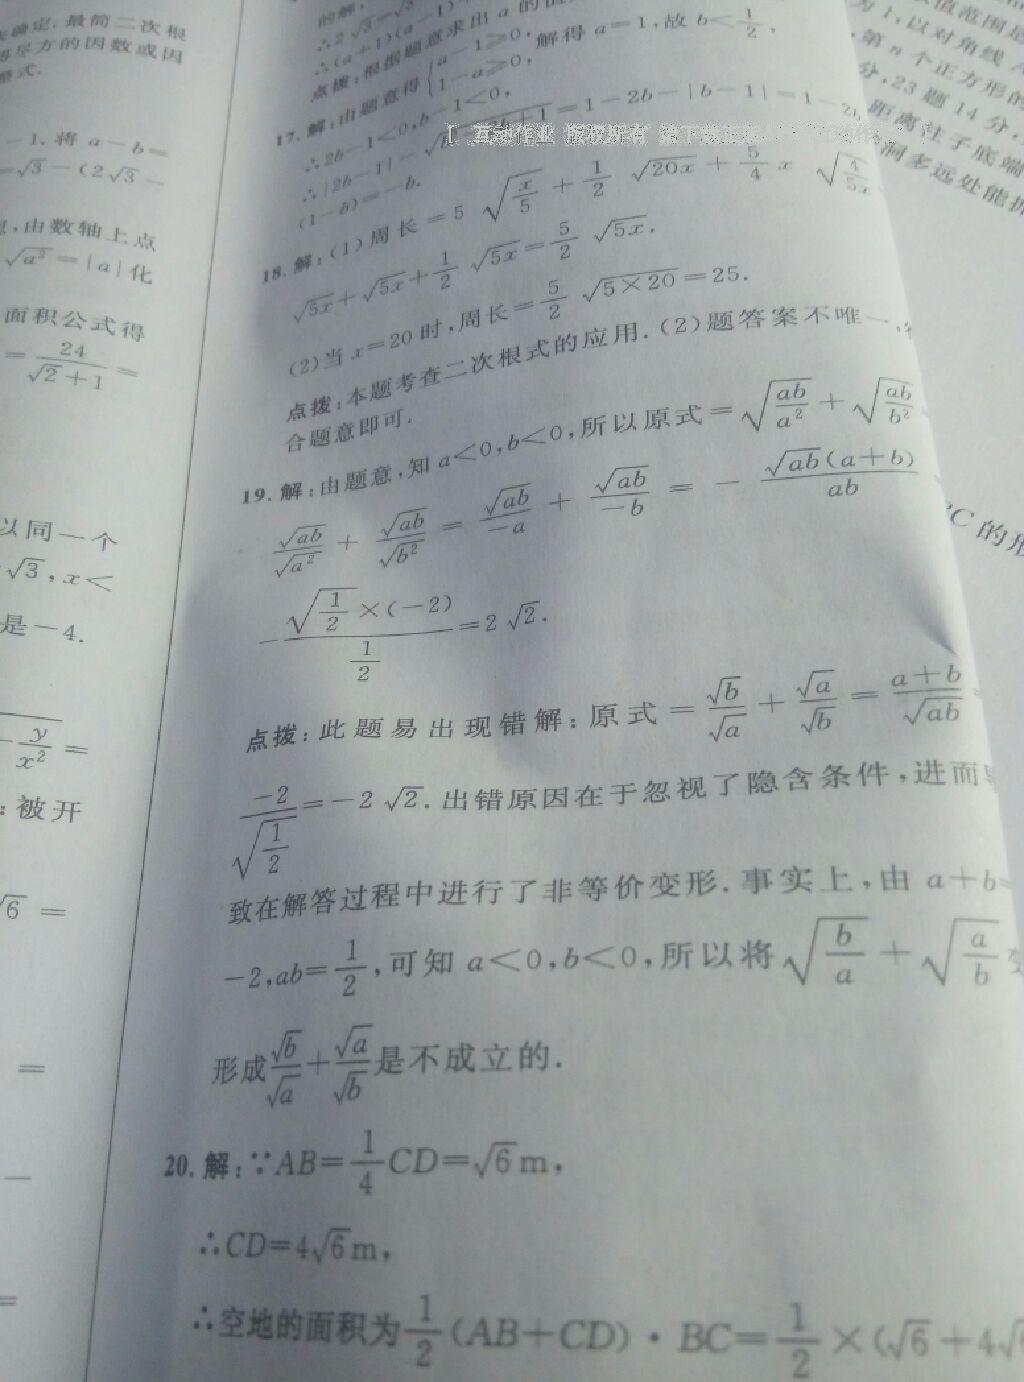 确定.最简二次根
尽方的因数或因
-1.将 a-b=
=√3-(2√3-
,由数轴上点
√a²=|a|化
面积公式得
=24/(√2+1)=
以同一个
√3,x<
是-4.
-y/x²=
:被开
√6=
=
的解,
∴2√3-√3
∴(a+1)(a-1)
点拨:根据题意求出 a 的值
17.解:由题意得{a-1≥0, 1-a≥0, 解得 a=1,故 b<1/2,
∴2b-1<0,b-1<0,
∴|2b-1|-√(b²-2b+1)=1-2b-|b-1|=1-2b
(1-b)=-b.
18.解:(1)周长=5√(x/5)+1/2√20x+5/4 x√(4/5x)
√5x+√5x+1/2√5x=5/2√5x.
(2)当 x=20 时,周长=5/2√(5×20)=25.
点拨:本题考查二次根式的应用.(2)题答案不唯一,
合题意即可.
19.解:由题意,知 a<0,b<0,所以原式=√(ab/a²)+√(ab/b²)
√ab/√a²+√ab/√b²=√ab/-a+√ab/-b=-√ab(a+b)/ab
-(√(1/2)×(-2))/(1/2)=2√2.
点拨:此题易出现错解:原式=√b/√a+√a/√b=(a+b)/√ab
-2/√(1/2)=-2√2.出错原因在于忽视了隐含条件,进而
致在解答过程中进行了非等价变形.事实上,由 a+b=
-2,ab=1/2,可知 a<0,b<0,所以将√(b/a)+√(a/b)
形成√b/√a+√a/√b是不成立的.
20.解:∵AB=1/4CD=√6m,
∴CD=4√6m,
∴空地的面积为1/2(AB+CD)·BC=1/2×(√6+4√
值范围是
为 1,以对角线
.第 n 个正方形的
分,23 题 14 分,
距离柱子底端
洞多远处能抓
C 的形